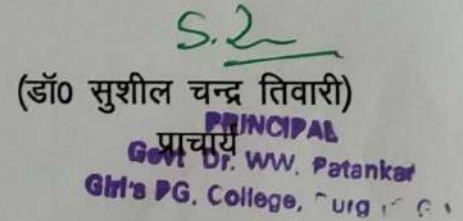 (डॉ0 सुशील चन्द्र तिवारी)
प्राचार्य
PRINCIPAL
Govt Dr. WW. Patankar
Girl's PG. College,